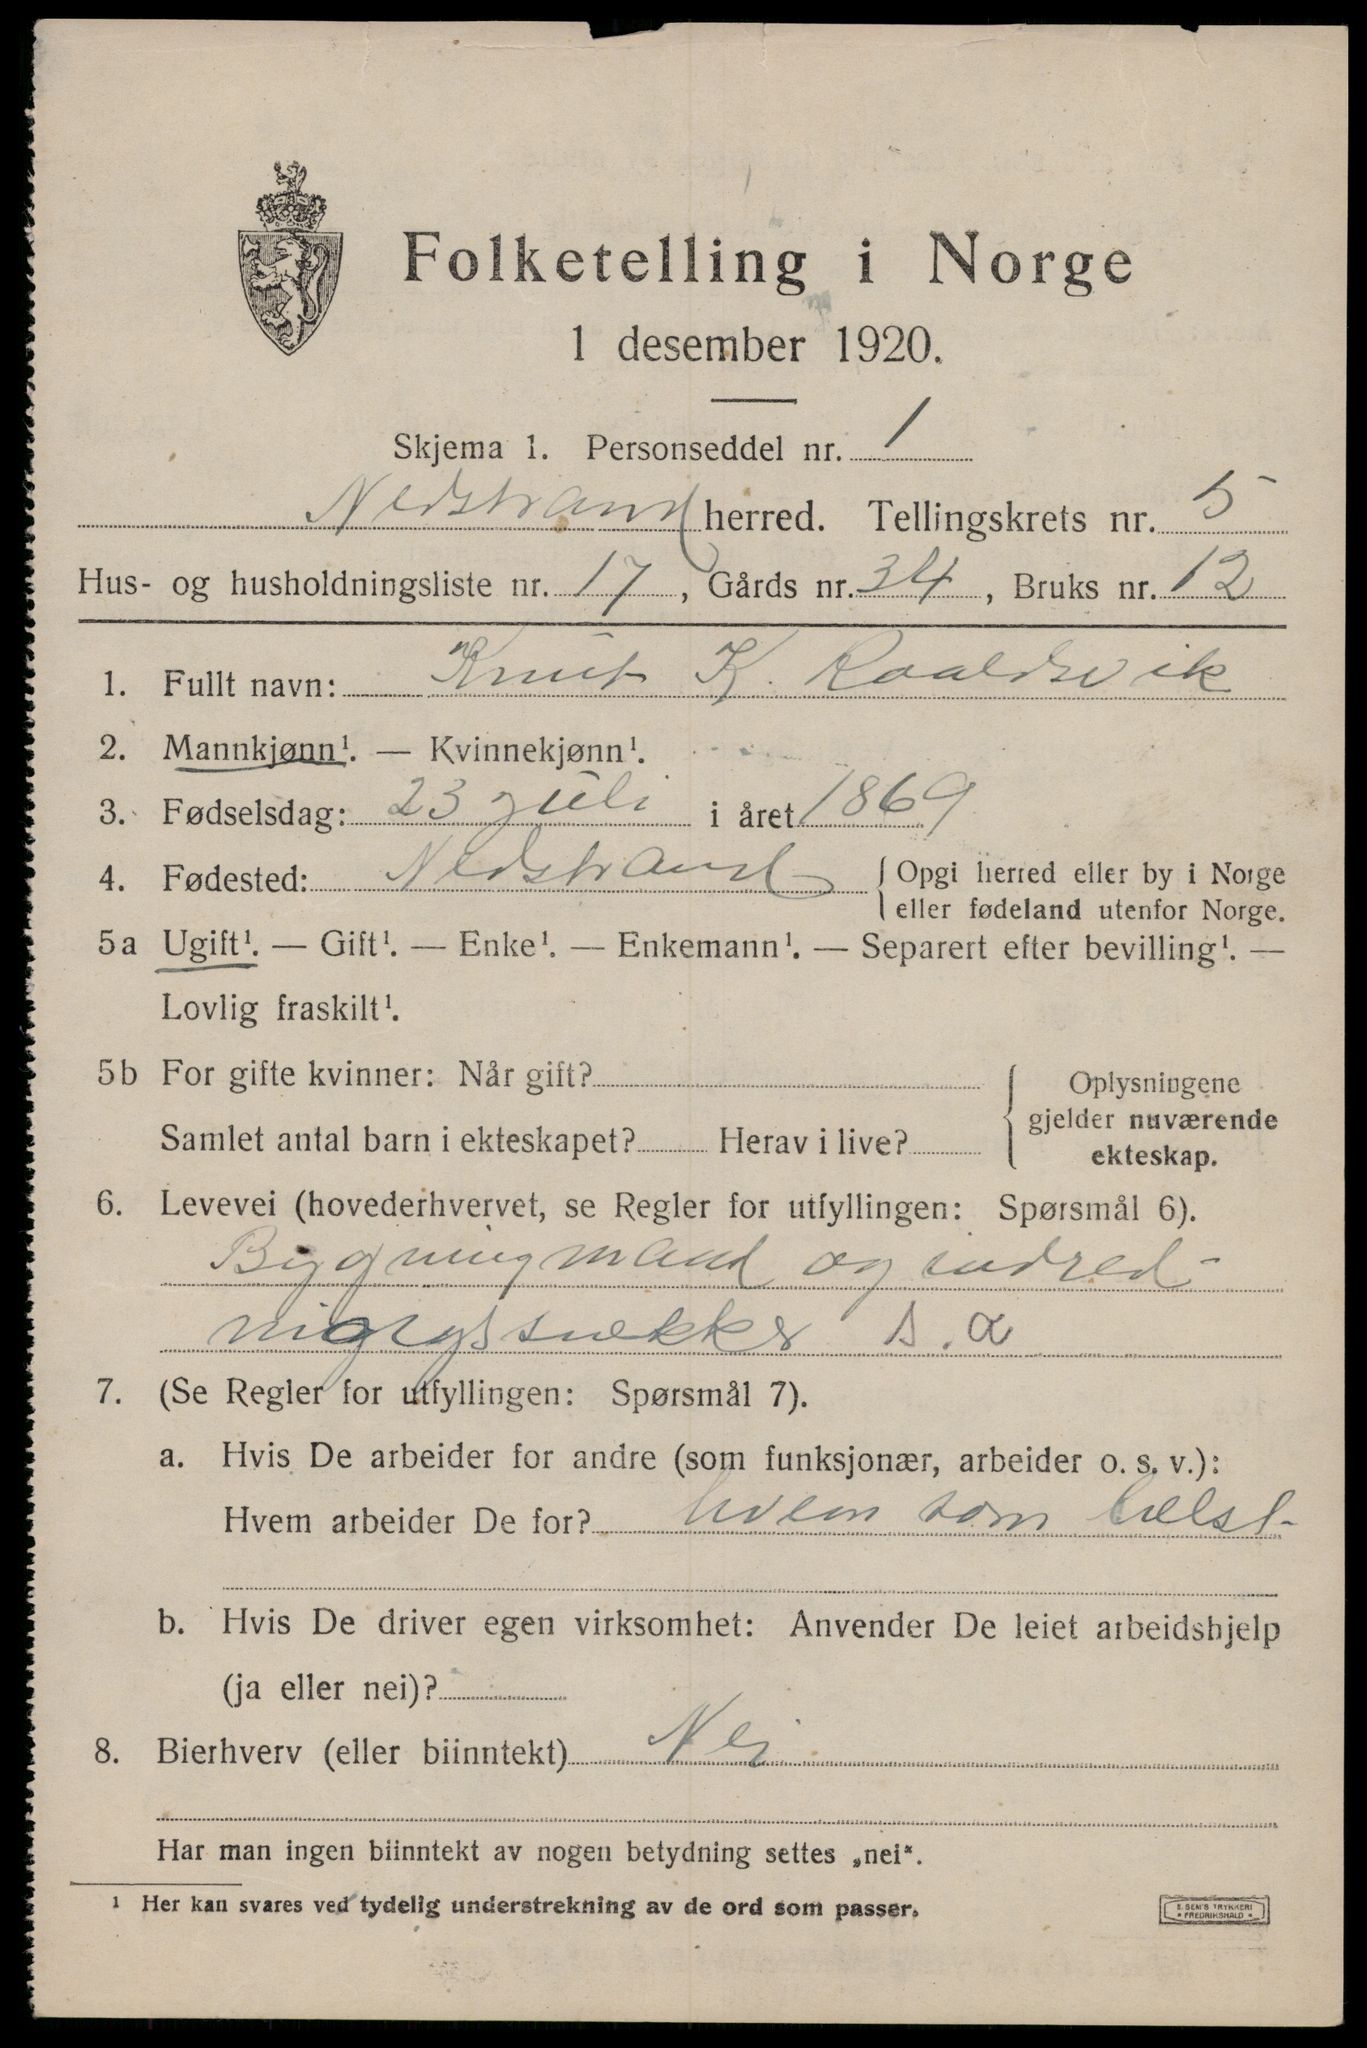 Folketelling i Norge
1 desember 1920.
Skjema 1. Personseddel nr. 1
Nedstrand herred. Tellingskrets nr. 5
Hus- og husholdningsliste nr. 17, Gårds nr. 34, Bruks nr. 12
1. Fullt navn: Knut K. Raaldsvik
2. Mannkjønn¹. — Kvinnekjønn¹.
3. Fødselsdag: 23 juli i året 1869
4. Fødested: Nedstrand { Opgi herred eller by i Norge
eller fødeland utenfor Norge.
5a Ugift¹. — Gift¹. — Enke¹. — Enkemann¹. — Separert efter bevilling¹. —
Lovlig fraskilt¹.
5b For gifte kvinner: Når gift?
Samlet antal barn i ekteskapet? Herav i live?
Oplysningene
gjelder nuværende
ekteskap.
6. Levevei (hovederhvervet, se Regler for utfyllingen: Spørsmål 6).
Bygningmand og indred-
nigngssnekker s. a
7. (Se Regler for utfyllingen: Spørsmål 7).
a. Hvis De arbeider for andre (som funksjonær, arbeider o. s. v.):
Hvem arbeider De for? hvem som helst
b. Hvis De driver egen virksomhet: Anvender De leiet arbeidshjelp
(ja eller nei)?
8. Bierhverv (eller biinntekt) Nei
Har man ingen biinntekt av nogen betydning settes „nei“.
¹ Her kan svares ved tydelig understrekning av de ord som passer.
E. SEM'S TRYKKERI
FREDRIKSHALD